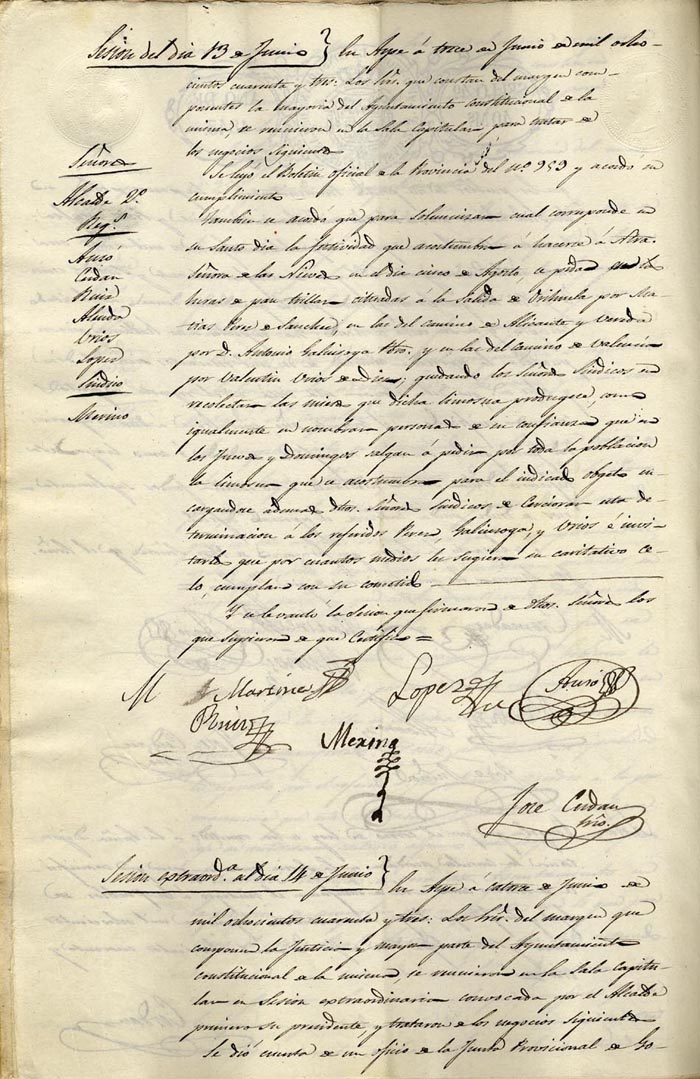 Sesion del dia 13 de Junio } En Aspe á trece de Junio de mil ocho-
cientos cuarenta y tres: Los Sres. que constan del margen com-
ponentes la mayoria del Ayuntamiento constitucional de la
misma, se reunieron en la Sala Capitular, para tratar de
los negocios siguientes
Señores
Alcalde 2º
Reg.s
Auró
Cerdan
Ruiz
Almida
Urios
Lopez
Sindico
Merino
Se leyó el Boletin oficial de la Provincia del Nº 959 y acordó su
cumplimiento
Tambien se acordó que para solemnizar cual corresponde en
su Santo dia la festividad que acostumbra á hacerse á Ntra.
Señora de las Nieves en el dia cinco de Agosto se pida en las
heras de pan trillar citeadas á la salida de Orihuela por Ma-
tias Perez de Sanchez, en las del camino de Alicante y Vereda
por D. Antonio Galiusoga Pbro. y en las del camino de Valencia
por Valentin Urios de Diez; quedando los Señores Sindicos en
recolectar las mieses que dicha limosna produgese, como
igualmente en nombrar personas de su confianza que en
los Jueves y Domingos salgan á pedir por toda la poblacion
la limosna que se acostumbra para el indicado objeto en-
cargandose ademas dhos. Señores Sindicos de Cerciorar esta de-
terminacion á los referidos Perez, Galiusoga, y Urios é invi-
tarles que por cuantos medios les sugiera su caritativo ce-
lo, cumplan con su cometido
Y se levantó la Sesion que firmaron de dhos. Señores los
que supieron de que Certifico =
M Martinez
Lopez
Auró
Ruiz
Merino
Jose Cerdan
Srio.
Sesion extraord.a al dia 14 de Junio } En Aspe á catorce de Junio de
mil ochocientos cuarenta y tres: Los Sres. del margen que
componen la Justicia y mayor parte del Ayuntamiento
constitucional de la misma se reunieron en la Sala Capitu-
lar en Sesion extraordinaria convocada por el Alcalde
primero su presidente, y trataron de los negocios siguientes
Se dió cuenta de un oficio de la Junta Provicional de Go-